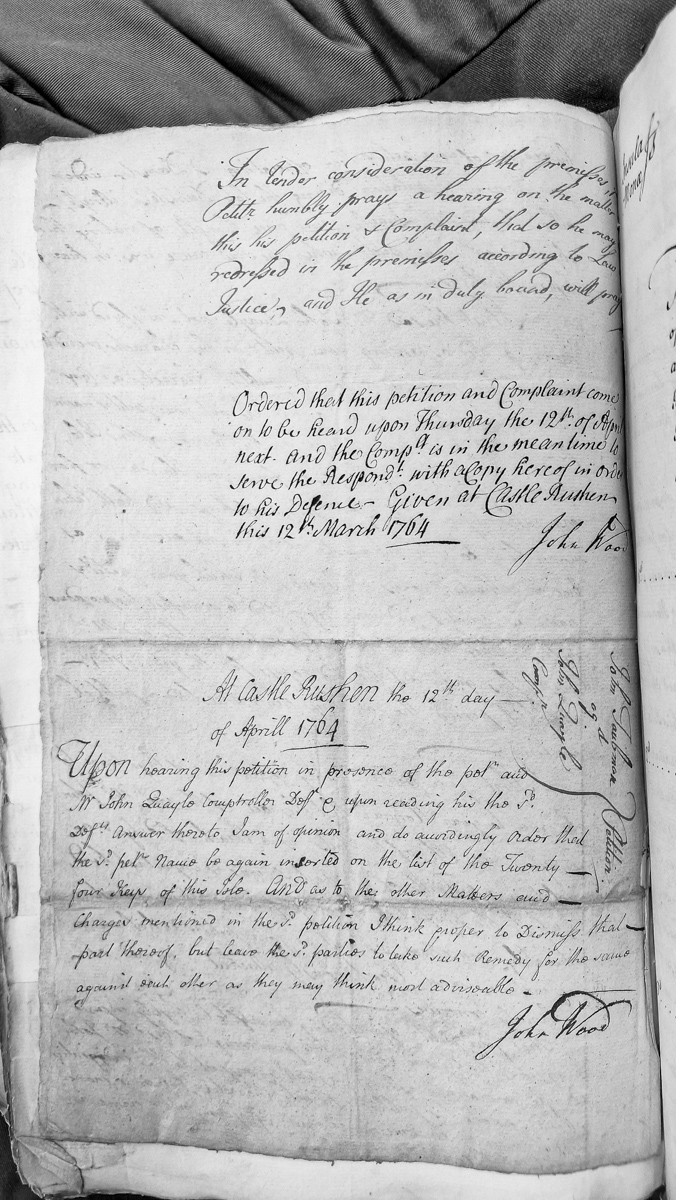 In tender consideration of the premisses
Petit.r humbly prays a hearing on the matter
this his petition & Complaint, that so he may
redressed in the premisses according to Law
Justice, and He as in duly bound, will pray
Ordered that this petition and Complaint come
on to be heard upon Thursday the 12th. of April
next. and the Comp.t is in the mean time to
serve the Respond.t with a Copy hereof in order
to his Defence - Given at Castle Rushen
this 12th. March 1764
John Wood
At Castle Rushen the 12th day
of Aprill 1764
Upon hearing this petition in presence of the pet.r and
Mr John Quayle Comptroller Def.t & upon reading his the s.d
Def.ts Answer thereto I am of opinion and do accordingly order that
the s.d pet.rs Name be again inserted on the list of the Twenty
four Keys of this Isle. And as to the other Matters and
Charges mentioned in the s.d petition I think proper to Dismiss that
part thereof, but leave the s.d parties to take such Remedy for the same
against each other as they may think most adviseable -
John Wood
John
ag.d
John Quayle
Comp.r
Petition